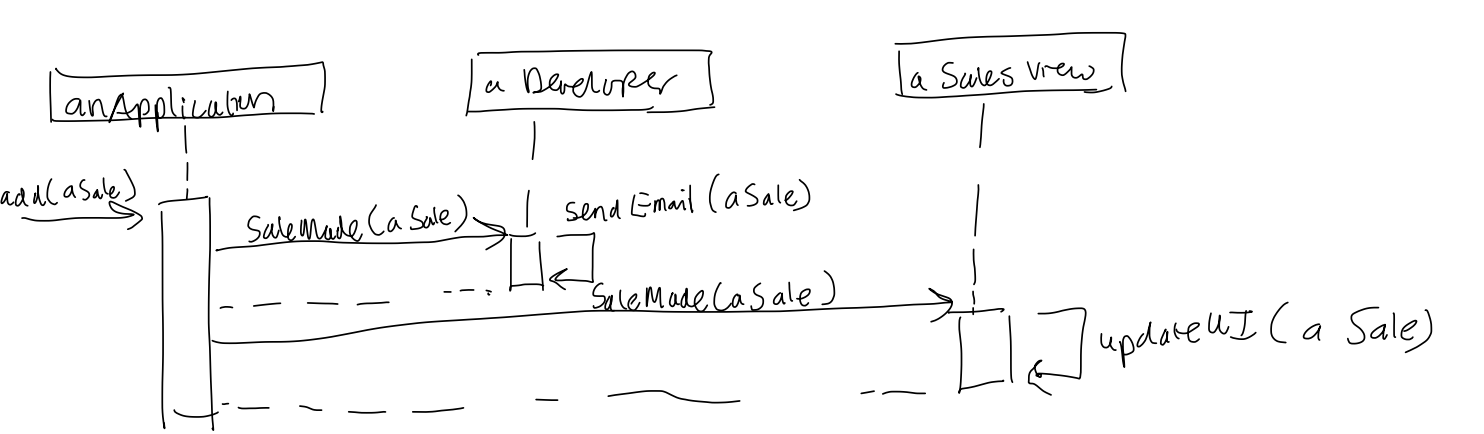 anApplication
a Developer
a Sales View
add(aSale)
SaleMade(a Sale)
sendEmail(aSale)
SaleMade(aSale)
updateUI( a Sale)